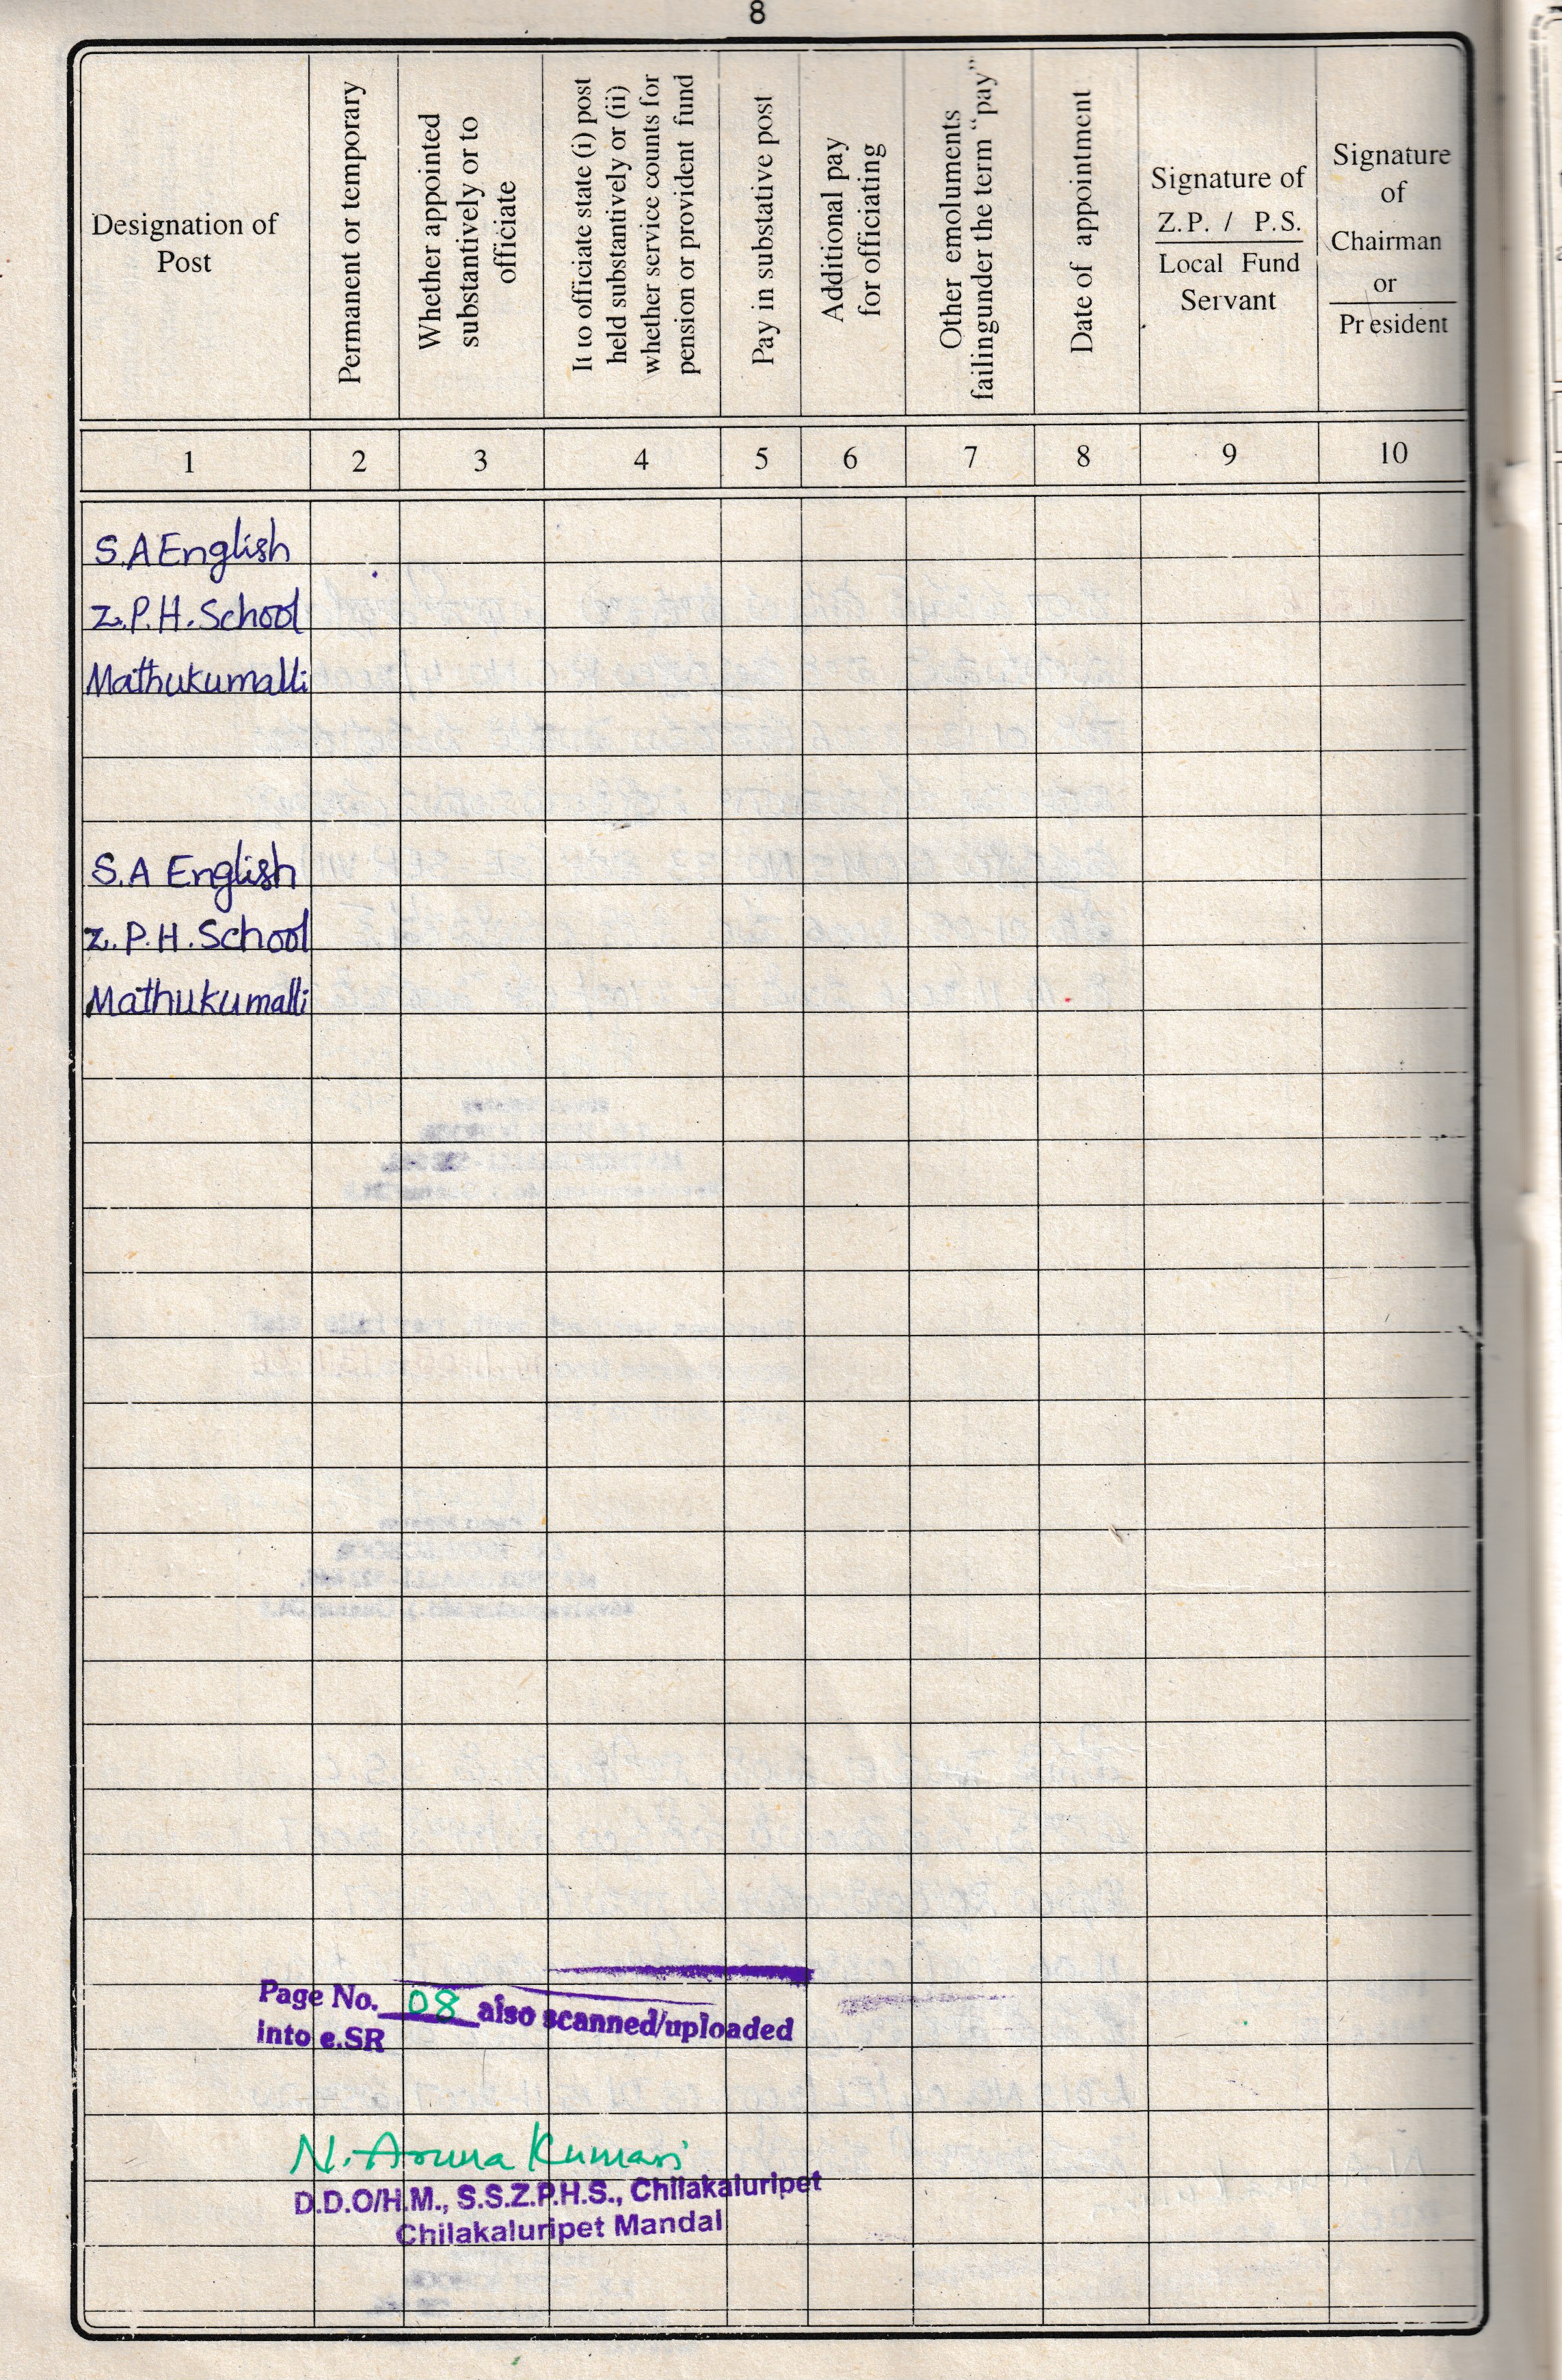 8
Designation of
Post
Permanent or temporary
Whether appointed
substantively or to
officiate
It to officiate state (i) post
held substantively or (ii)
whether service counts for
pension or provident fund
Pay in substative post
Additional pay
for officiating
Other emoluments
failingunder the term "pay"
Date of appointment
Signature of
Z.P. / P.S.
Local Fund
Servant
Signature
of
Chairman
or
President
1 2 3 4 5 6 7 8 9 10
S.A English
Z.P.H. School
Mathukumalli
S.A English
Z.P.H. School
Mathukumalli
Page No. 08 also scanned/uploaded
into e.SR
N. Aruna Kumari
D.D.O/H.M., S.S.Z.P.H.S., Chilakaluripet
Chilakaluripet Mandal